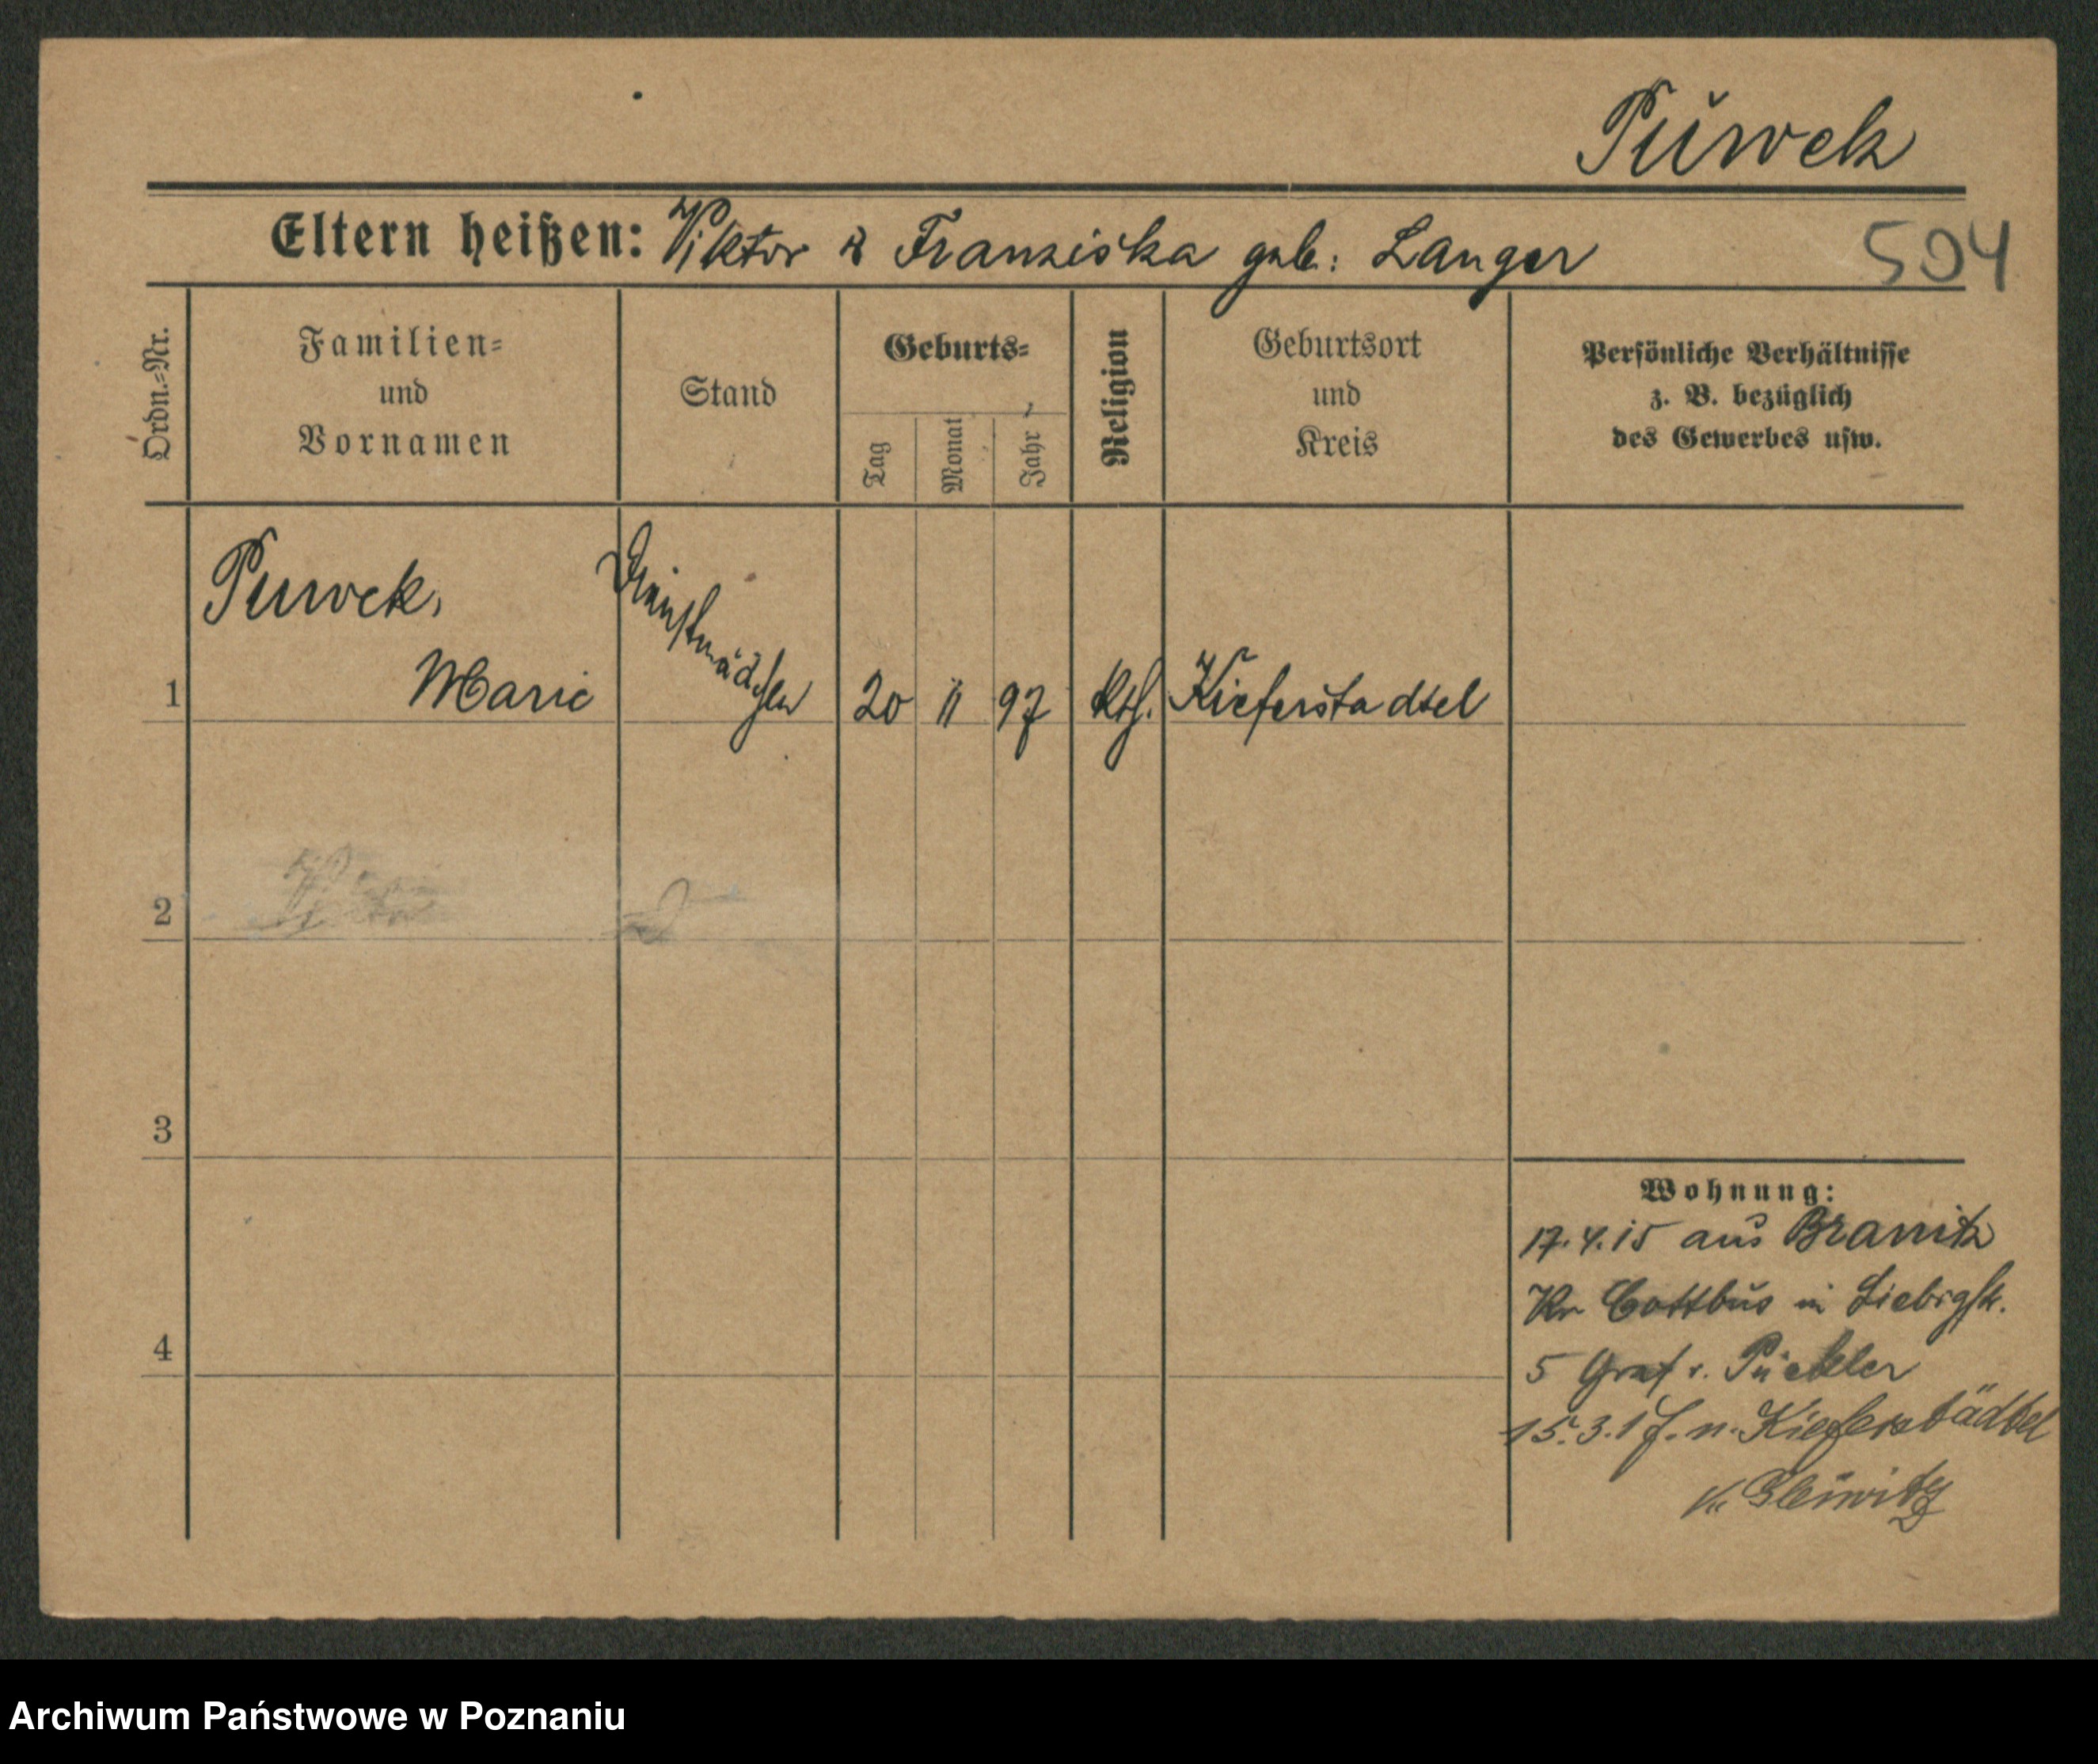 Pŭwek
Eltern heißen: Viktor & Franziska geb: Langer
504
Ordn.=Nr.
Familien=
und
Vornamen
Stand
Geburts=
Tag
Monat
Jahr
Religion
Geburtsort
und
Kreis
Persönliche Verhältnisse
z. B. bezüglich
des Gewerbes usw.
1
Puwek,
Marie
Dienstmädchen
20
11
97
kth.
Kieferstadtel
2
3
4
Wohnung:
17.4.15 aus Branitz
Kr Cottbus in Liebigstr.
5 Graf v. Pückler
15.3.17. n. Kieferstädtel
K. Gleiwitz
Archiwum Państwowe w Poznaniu